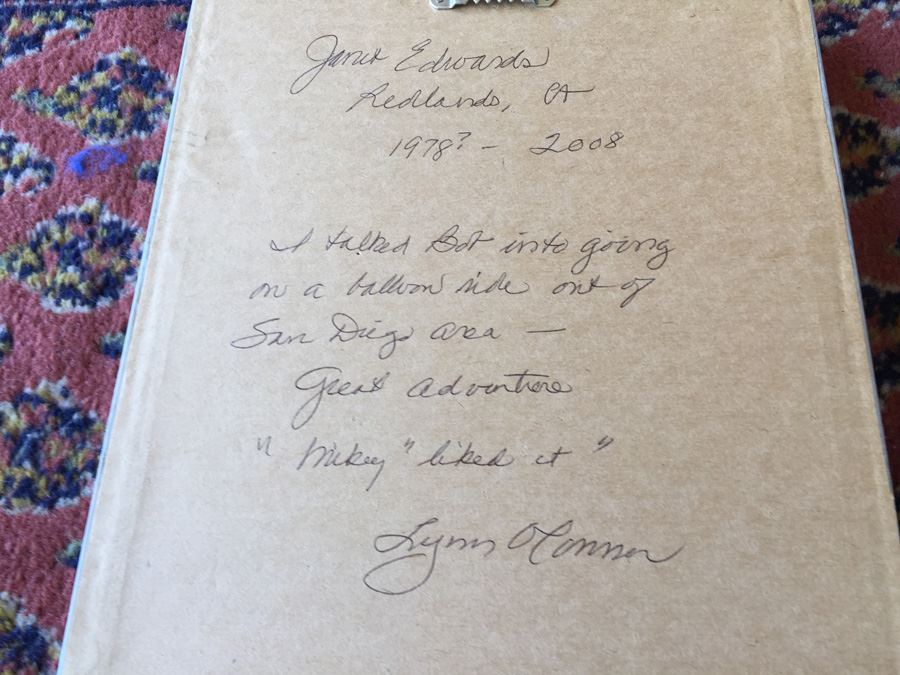 Janet Edwards
Redlands, CA
1978? - 2008
I talked Bob into going
on a balloon ride out of
San Diego area —
Great adventure
" Mikey " liked it "
Lynn O'Connor